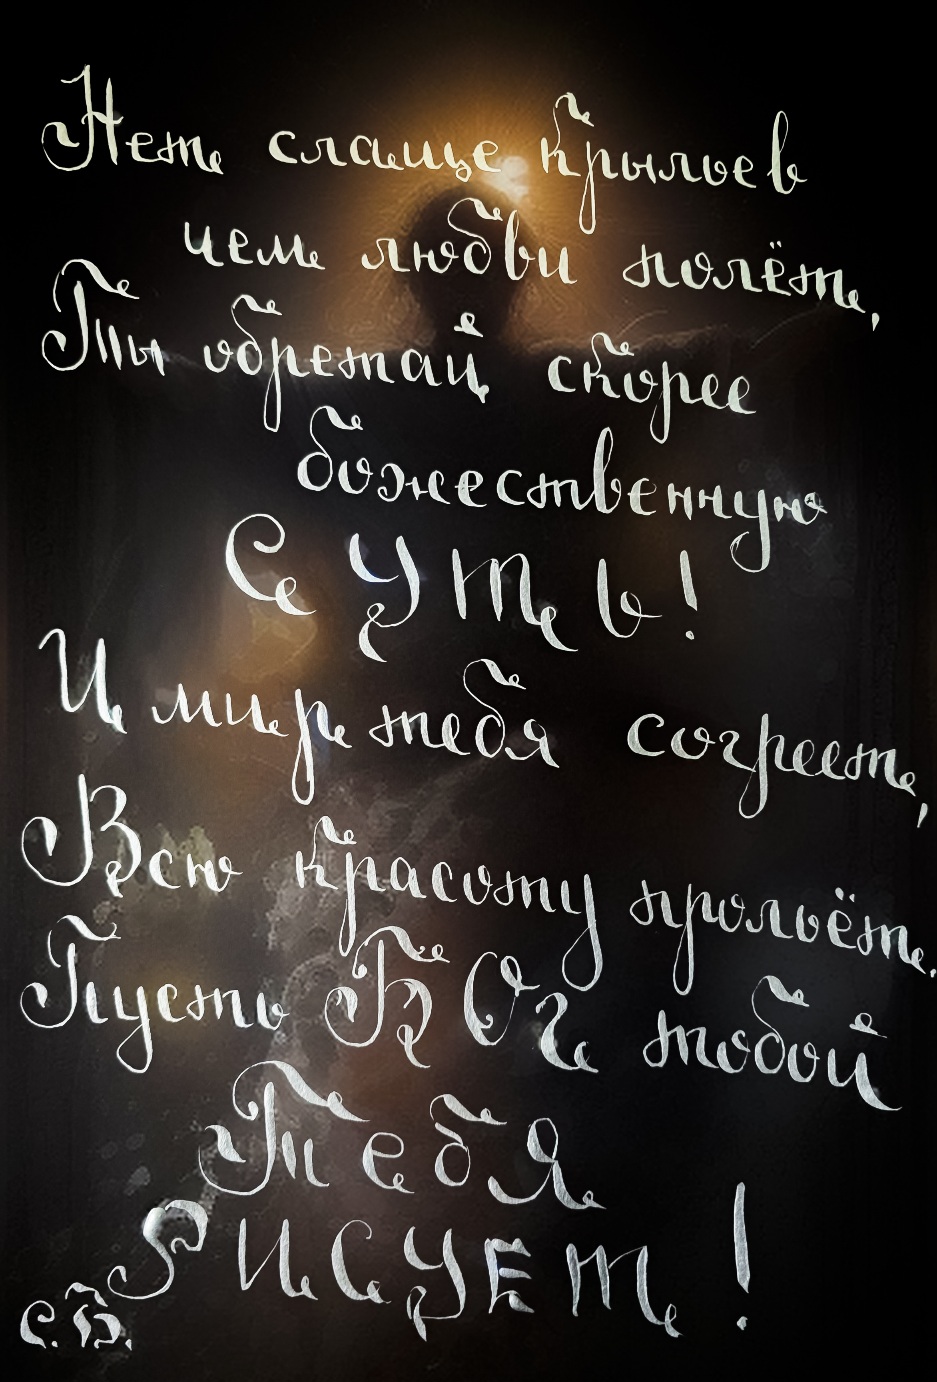 Нет слаще крыльев
чем любви полёт,
Ты обретай скорее
божественную
СУТЬ!
И мир тебя согреет,
Всю красоту прольёт.
Пусть БОг тобой
Тебя
РИСУЕТ!
С.Б.